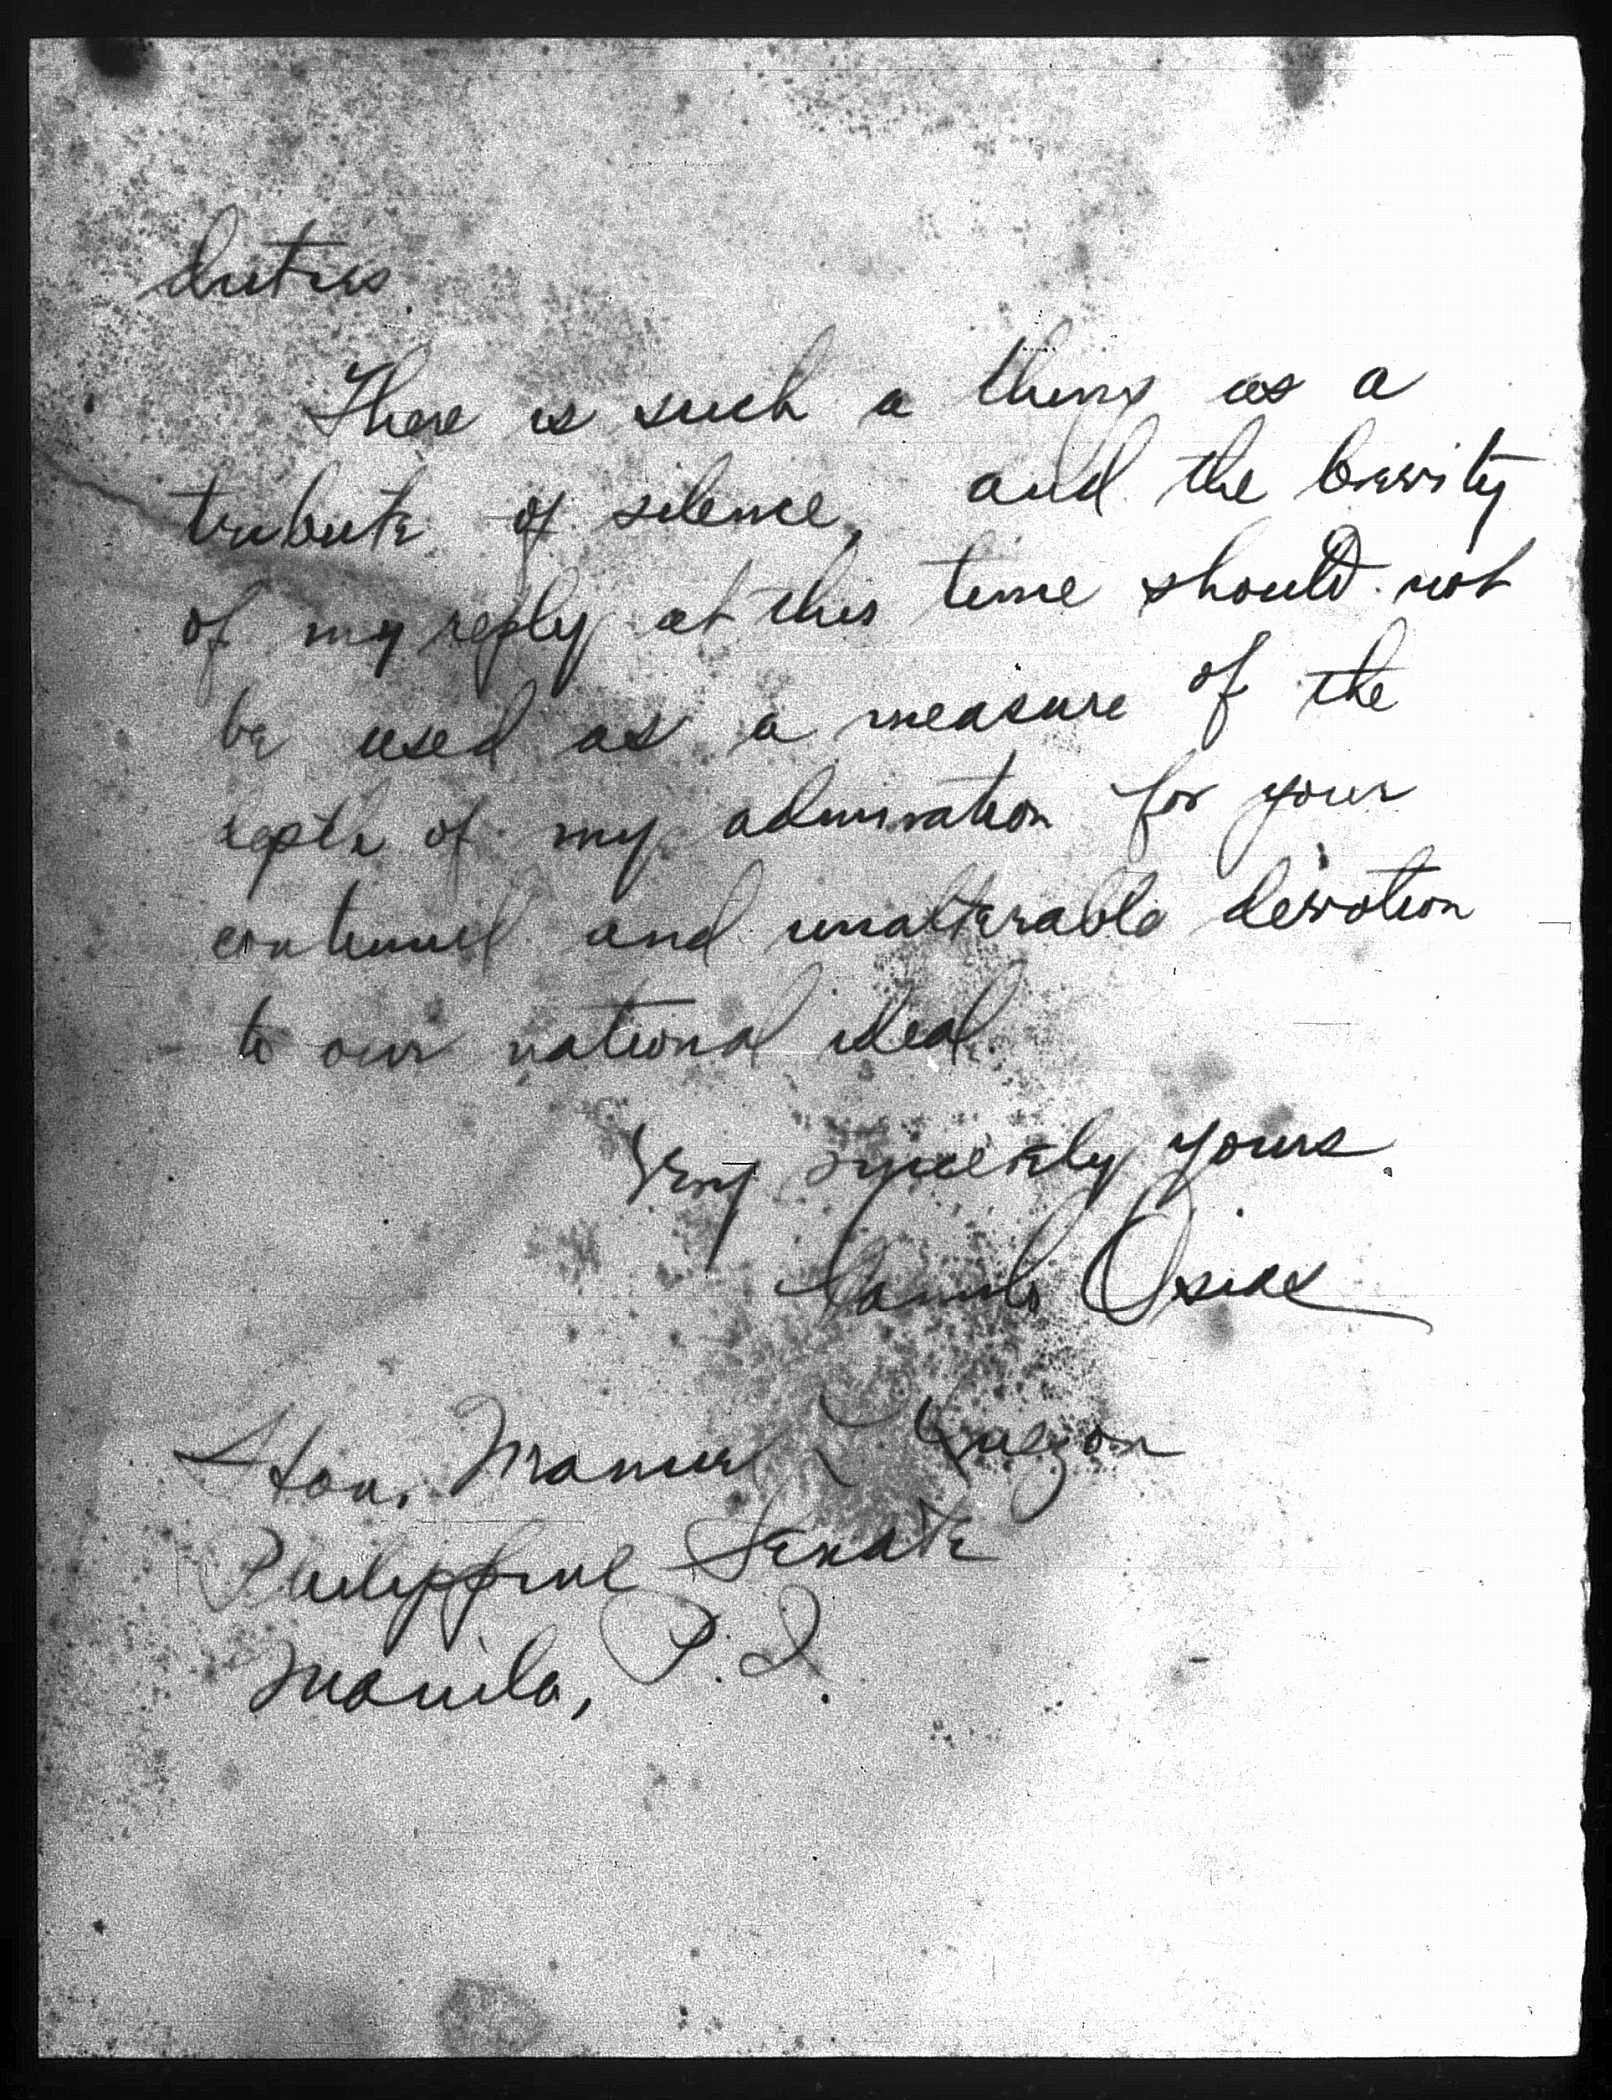 duties
There is such a thing as a
tribute of silence, and the brevity
of my reply at this time should not
be used as a measure of the
depth of my admiration for your
continued and unalterable devotion
to our national ideal.
Very sincerely yours
Camilo Osias
Hon. Manuel L Quezon
Philippine Senate
Manila, P.I.